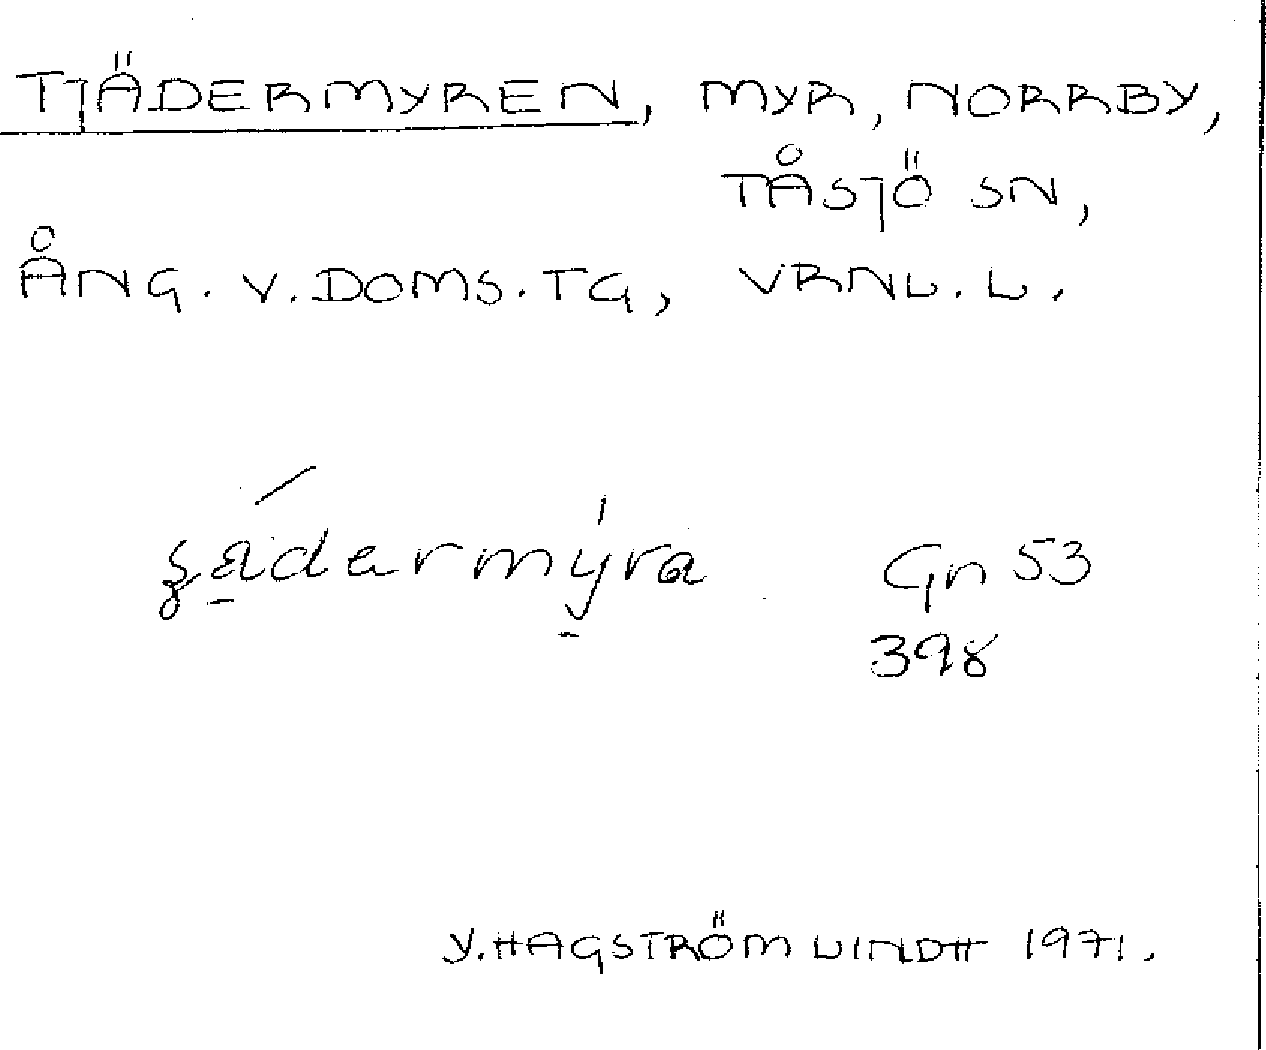 TJÄDERMYREN, MYR, NORRBY,
TÅSJÖ SN,
ÅNG. V. DOMS. TG, VRNL. L.
ʂädermyra Gn 53
398
Y. HAGSTRÖM LINDH 1971.